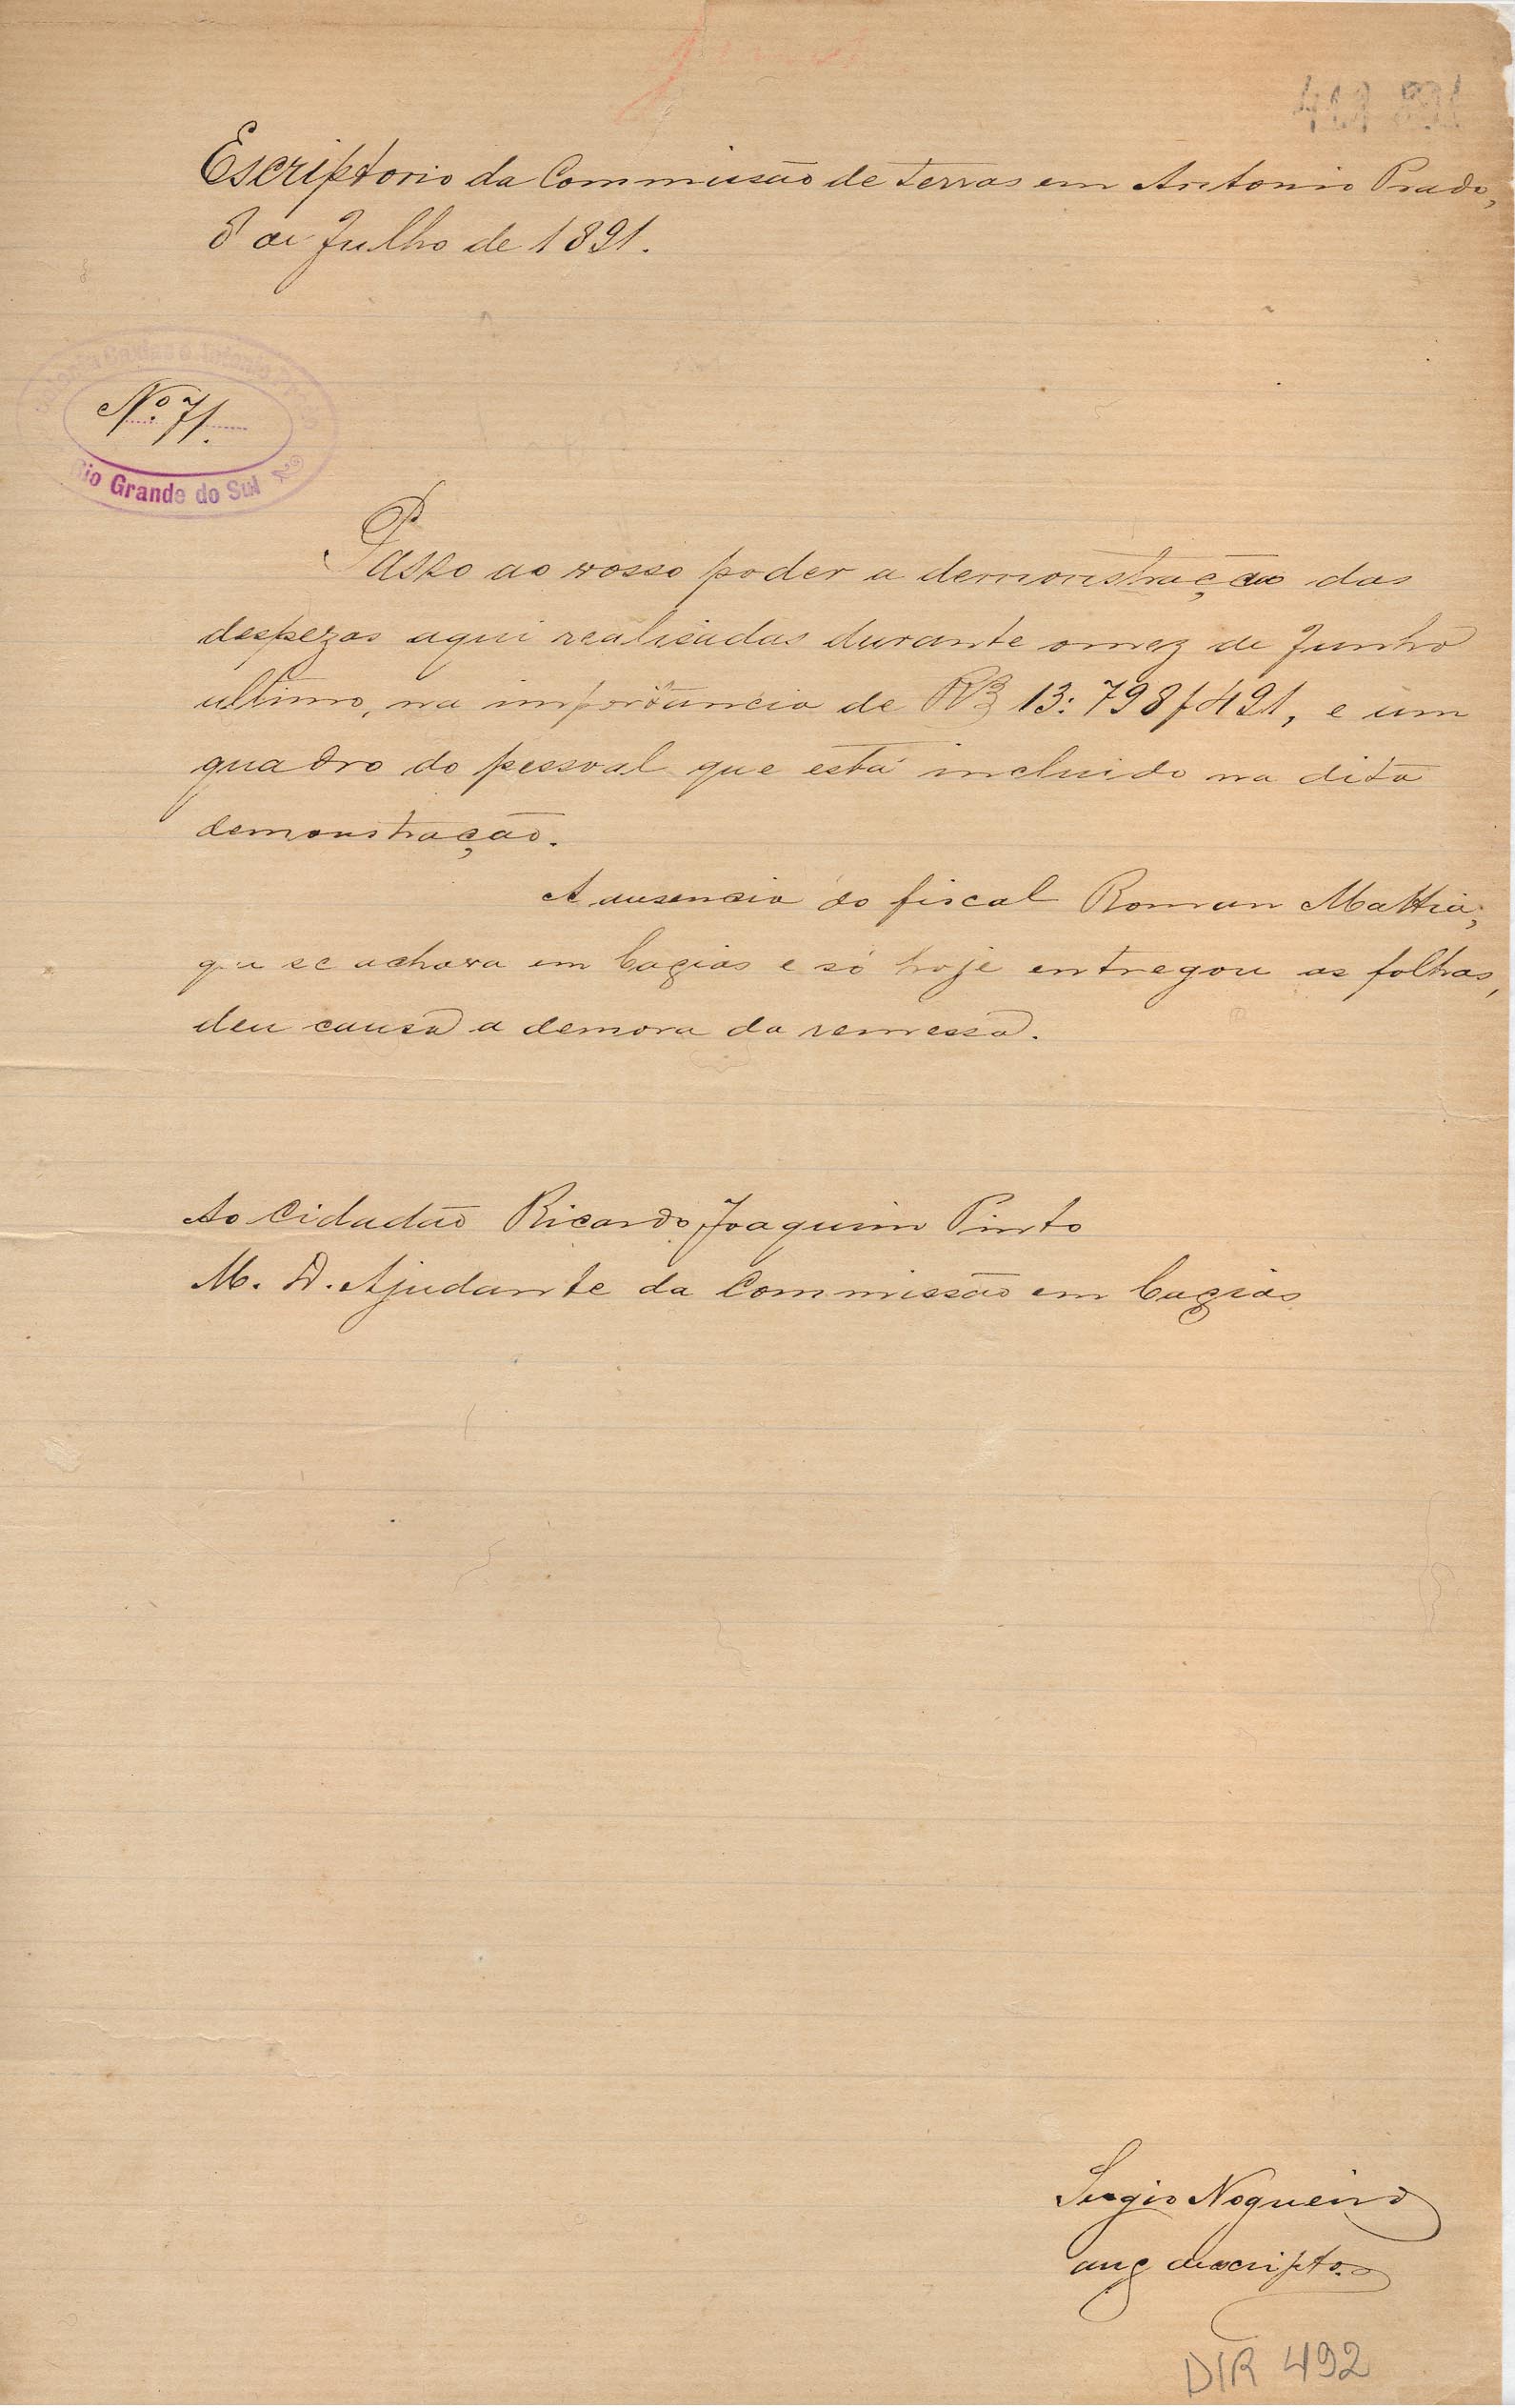 Escriptorio da Commissão de terras em Antonio Prado,
8 de Julho de 1891.
Nº 71.
Rio Grande do Sul
Passo ao vosso poder a demonstração das
despezas aqui realisadas durante o mez de Junho
ultimo, na importancia de Rs 13:798$491, e um
quadro do pessoal que está incluido na dita
demonstração.
A ausencia do fiscal Roman Mattia,
que se achava em Caxias e só hoje entregou as folhas,
deu causa a demora da remessa.
Ao Cidadão Ricardo Joaquim Pinto
M. D. Ajudante da Commissão em Caxias
Sergio Nogueira
aux descripto.
DIR 492